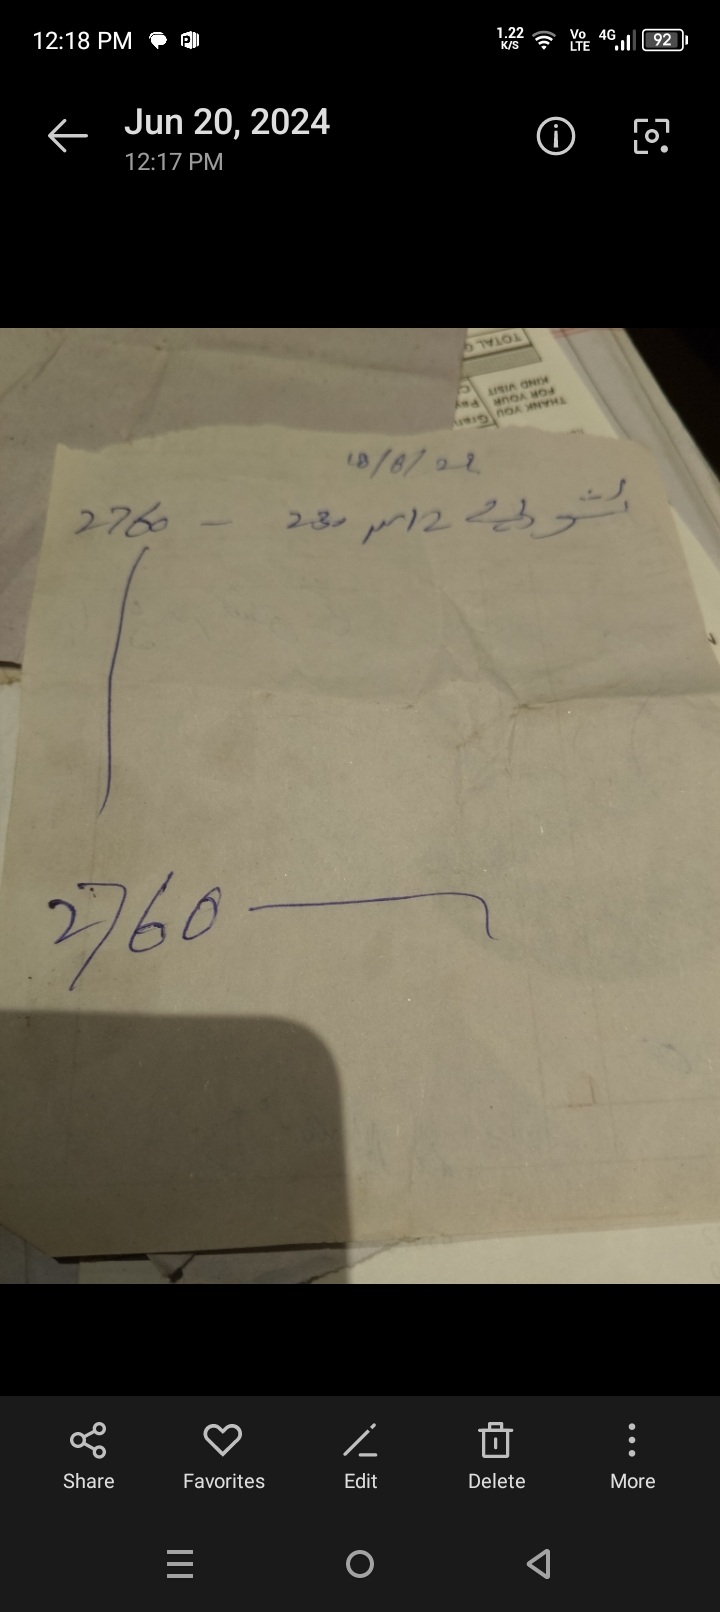 12:18 PM 1.22 K/S Vo LTE 4G 92
Jun 20, 2024
12:17 PM
TOTAL
THANK YOU
FOR YOUR
KIND VISIT
2760 — 230 12
2760
Share Favorites Edit Delete More